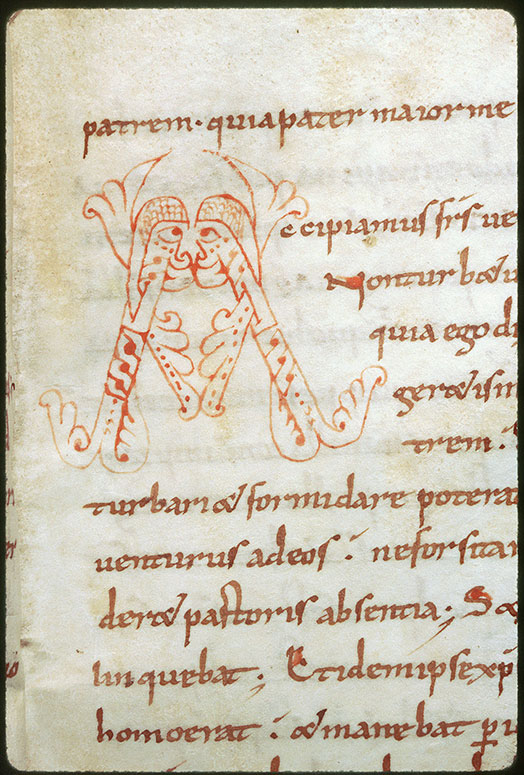 patrem· quia pater maior me
Accipiamus fr̄s ve
Non turb&u
quia ego di
ger&is m
trem.
turbari & formidare poterat
venturus ad eos : ne forsitan
der& pastoris absentia; S&
linquebat; Et idem ipse xp
homo erat : & manebat p̱ i